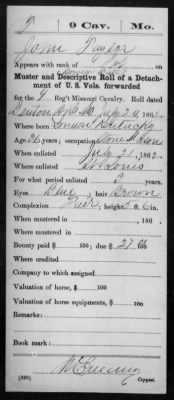 9 Cav. Mo.
John Taylor
Appears with rank of Pvt on
Muster and Descriptive Roll of a Detachment
of U. S. Vols. forwarded
for the 9 Reg't Missouri Cavalry. Roll dated
186
Where born London Kentucky
Age 26 years; occupation Stone Mason
When enlisted July 21, 1862
Where enlisted St Louis
For what period enlisted 3 years.
Eyes Blue; hair Brown
Complexion Fair; height 5 ft. 6 in.
When mustered in , 186 .
Where mustered in
Bounty paid $ 100; due $ 100
Where credited
Company to which assigned
Valuation of horse, $ 100
Valuation of horse equipments, $ 100
Remarks:
Book mark:
(339) Copyist.